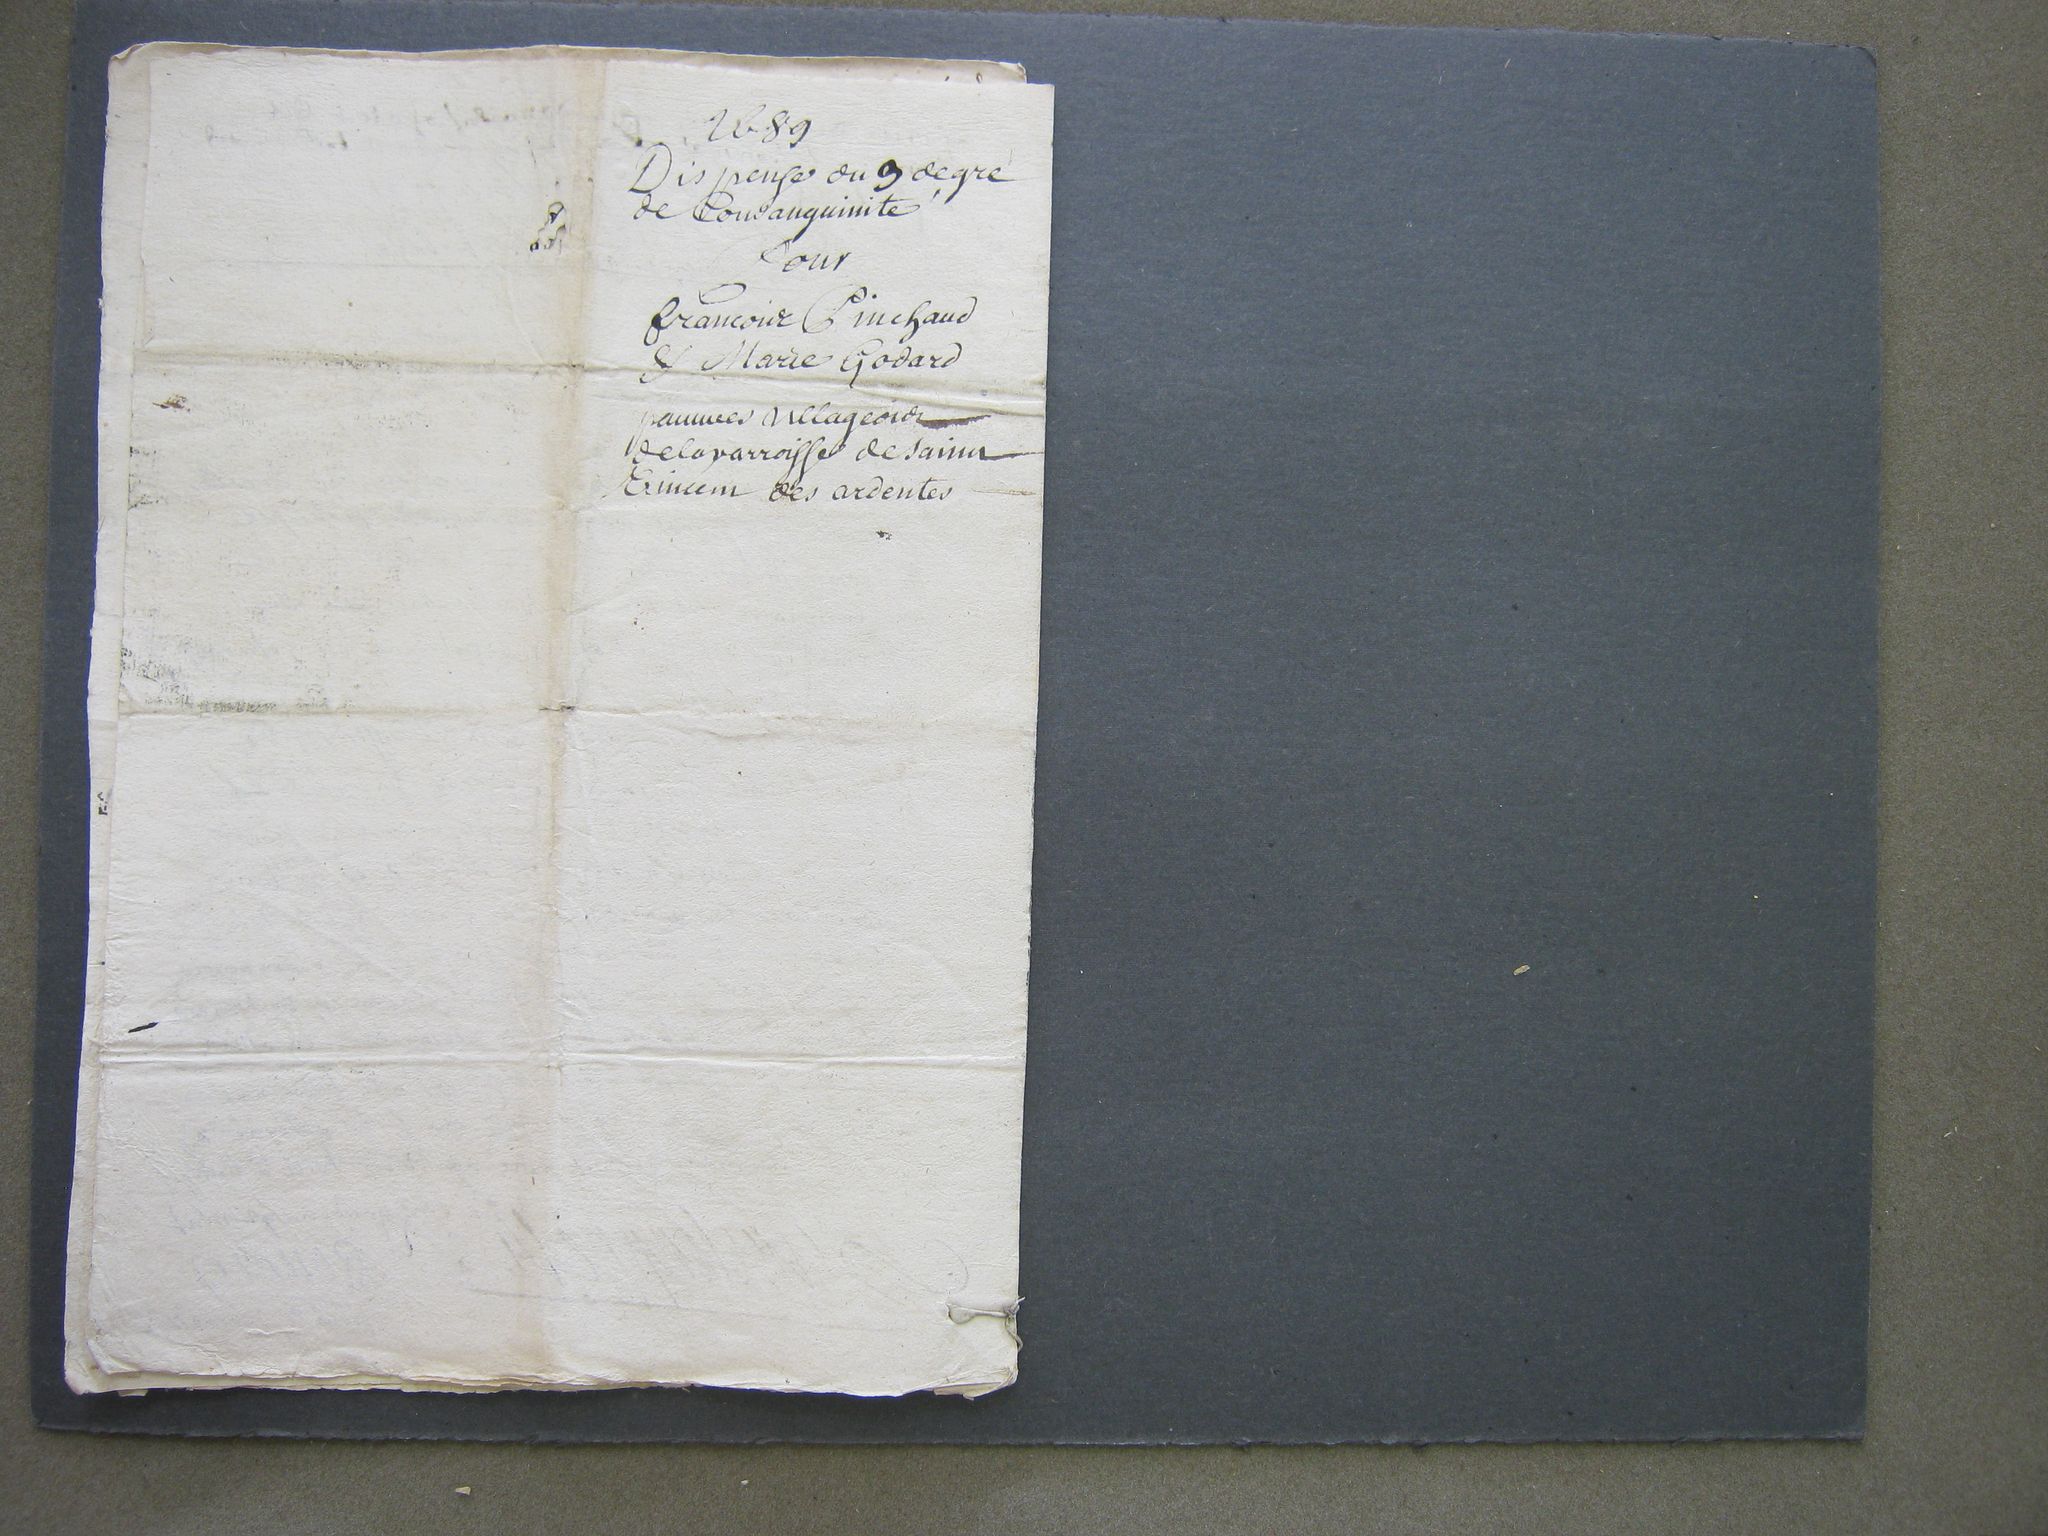 1689
Dispense du 3 degré
de Consanguinité
Pour
francois Pinchaud
& Marie Godard
pauures villageois
de la parroisse de saint
Vincent des ardentes